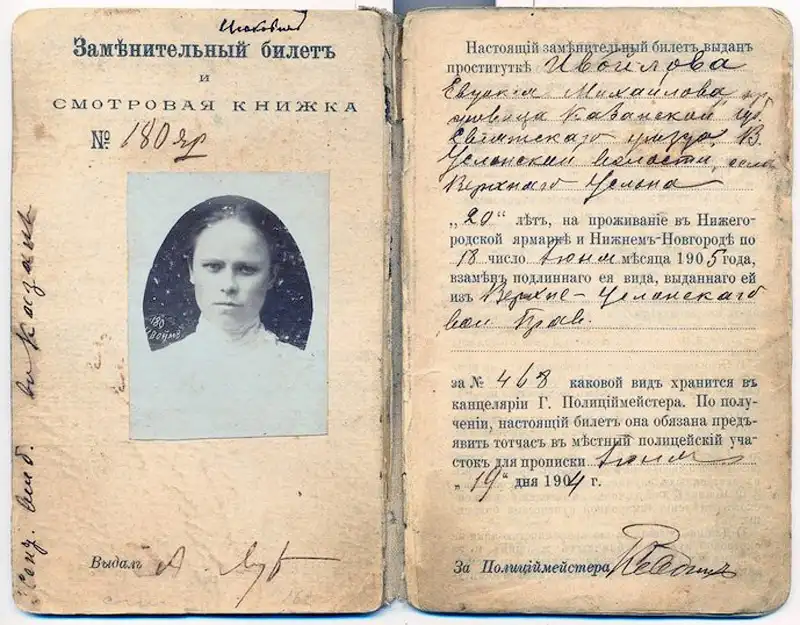 Замѣнительный билетъ
и
СМОТРОВАЯ КНИЖКА
№ 180 яр
180
Выдалъ
въ Казань
Настоящій замѣнительный билетъ выданъ
проституткѣ Ивойлова
Евдокія Михайлова
Казанской губ.
Свіяжскаго уѣзда, В.
Услонской волости, села
Верхняго Услона
„20“ лѣтъ, на проживаніе въ Нижего-
родской ярмаркѣ и Нижнемъ-Новгородѣ по
18 число Іюня мѣсяца 1905 года,
взамѣнъ подлиннаго ея вида, выданнаго ей
изъ Верхне-Услонскаго
вол. Прав.
за № 468 каковой видъ хранится въ
канцеляріи Г. Полиціймейстера. По полу-
ченіи, настоящій билетъ она обязана предъ-
явить тотчасъ въ мѣстный полицейскій уча-
стокъ для прописки Іюня
„19“ дня 1904 г.
За Полиціймейстера